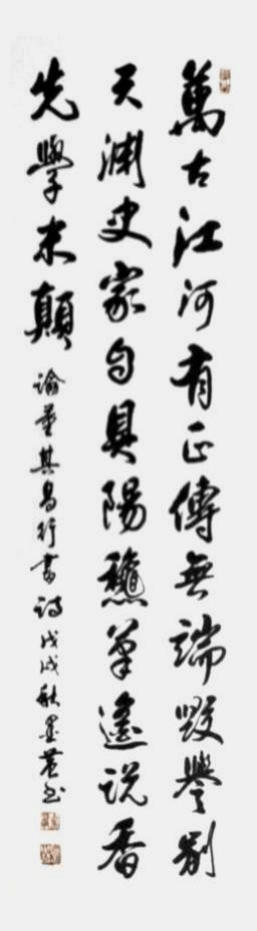 萬古江河有正傳無端毀譽別
天淵史家自具陽龝筆逕說香
光學米顛
論董其昌行書詩戊戌秋墨書